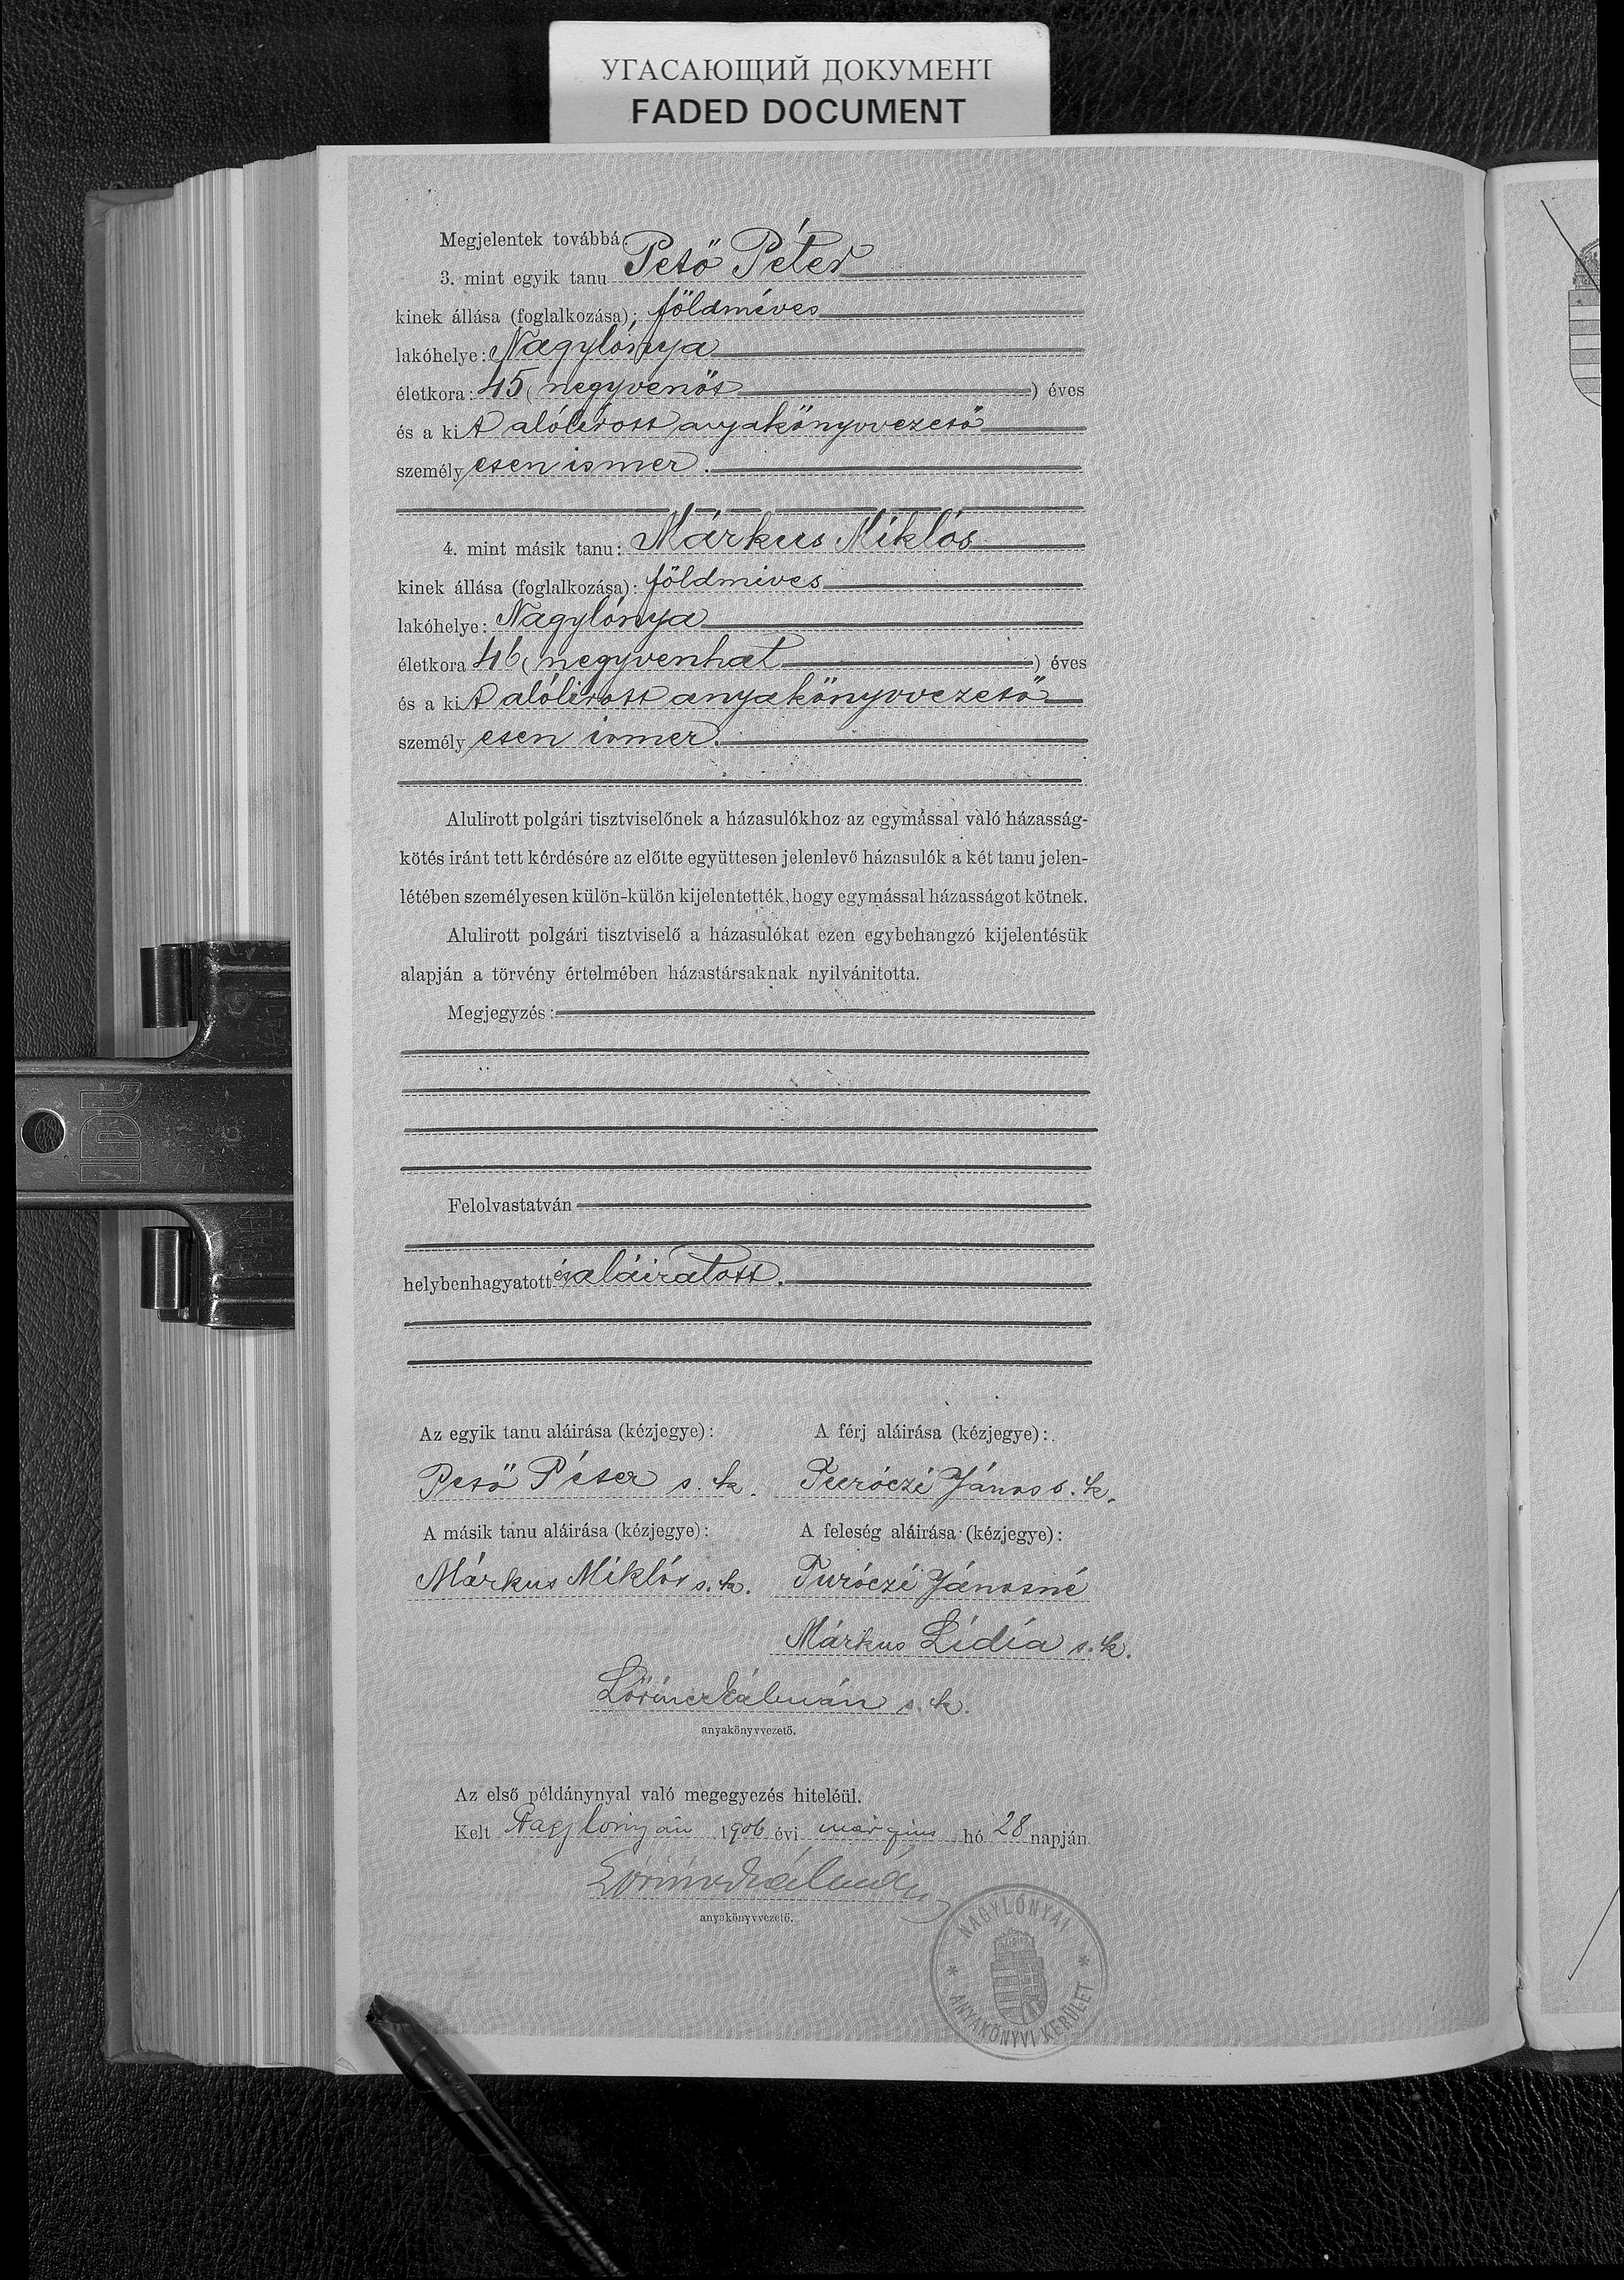 УГАСАЮЩИЙ ДОКУМЕНТ
FADED DOCUMENT
Megjelentek továbbá:
3. mint egyik tanu Pető Péter
kinek állása (foglalkozása): földmíves
lakóhelye: Nagylónya
életkora: 45 (negyvenöt) éves
és a kit alólírott anyakönyvvezető
személyesen ismer.
4. mint másik tanu: Márkus Miklós
kinek állása (foglalkozása): földmíves
lakóhelye: Nagylónya
életkora 46 (negyvenhat) éves
és a kit alólirott anyakönyvvezető
személyesen ismer.
Alulirott polgári tisztviselőnek a házasulókhoz az egymással való házasság-
kötés iránt tett kérdésére az előtte együttesen jelenlevő házasulók a két tanu jelen-
létében személyesen külön-külön kijelentették, hogy egymással házasságot kötnek.
Alulirott polgári tisztviselő a házasulókat ezen egybehangzó kijelentésük
alapján a törvény értelmében házastársaknak nyilvánitotta.
Megjegyzés:
Felolvastatván
helybenhagyatott és aláiratott.
Az egyik tanu aláirása (kézjegye): A férj aláirása (kézjegye):
Pető Péter s. k. Turóczi János s. k.
A másik tanu aláirása (kézjegye): A feleség aláirása (kézjegye):
Márkus Miklós s. k. Turóczi Jánosné
Márkus Lídia s. k.
Lőrincz Kálmán s. k.
anyakönyvvezető.
Az első példánynyal való megegyezés hiteléül.
Kelt Nagylónyán 1906 évi március hó 28 napján
Lőrincz Kálmán
anyakönyvvezető.
NAGYLÓNYAI
* ANYAKÖNYVI KERÜLET *